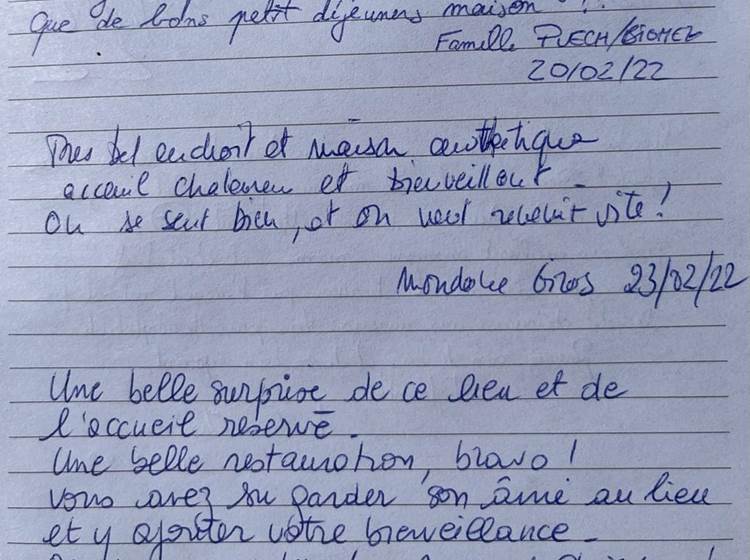 Que de bons petit déjeuners maison !
Famille PUECH/
20/02/22
Tres bel endroit et maison authetique
acceuil chaleureu et bienveillant
On se sent bien, et on veut revenir vite !
Gros 23/02/22
Une belle surprise de ce lieu et de
l'accueil reservé.
Une belle restauration, bravo !
vous avez su garder son âme au lieu
et y ajouter votre bienveillance.